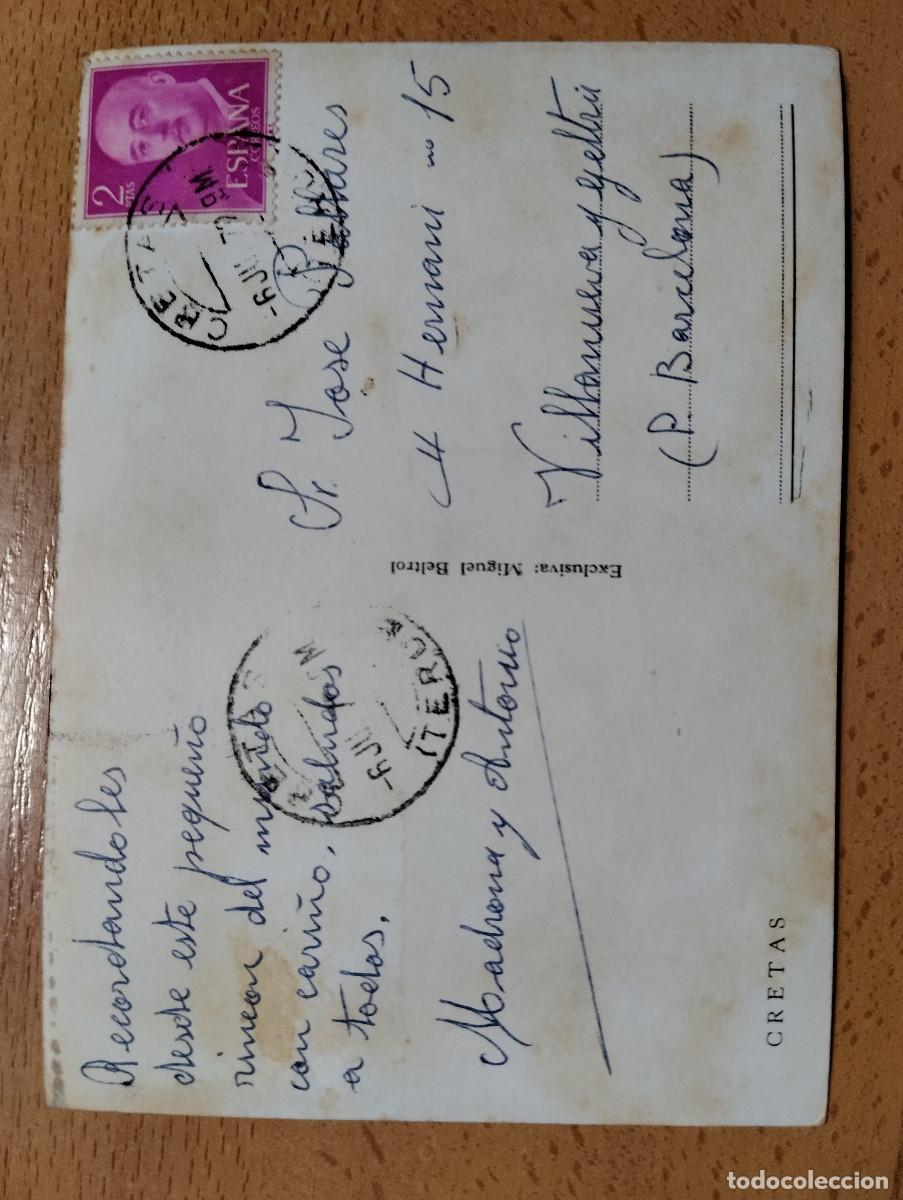 Recordandoles
desde este pequeño
rincon del mundo
con cariño, saludos
a todos,
Madrona y Antonio
CRETAS
Exclusiva: Miguel Beltrol
2
PTAS
ESPAÑA
CORREOS
CRETAS
-6 JUL
TERUEL
Sr. Jose Pallares
C/ Hernani nº 15
Villanueva y geltrú
(P. Barcelona)
-6 JUL
TERUEL
todocoleccion